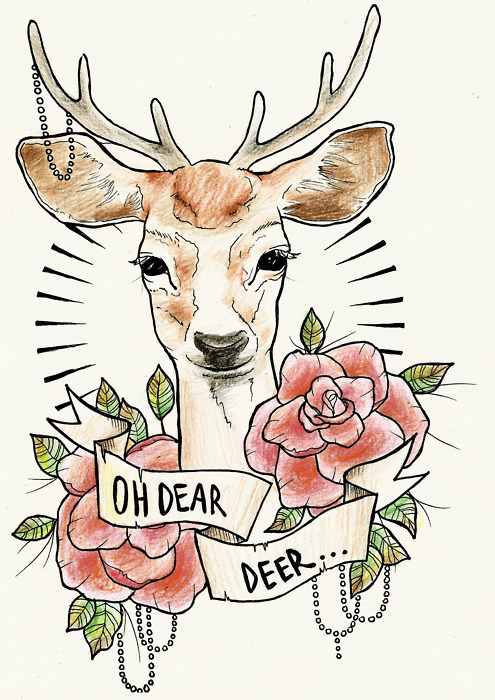 OH DEAR
DEER...